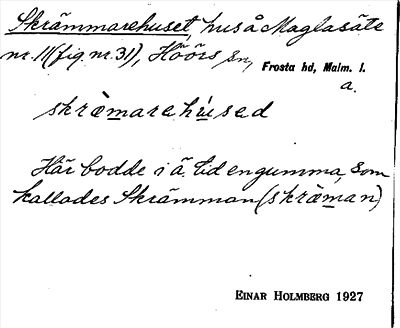 Skrämmarehuset, hus å Maglasäte
nr. 11 (fig. nr. 31), Höörs sn, Frosta hd, Malm. l.
a.
skræ̀marehúsed
Här bodde i ä. tid en gumma, som
kallades Skrämman (skræ̀man)
EINAR HOLMBERG 1927